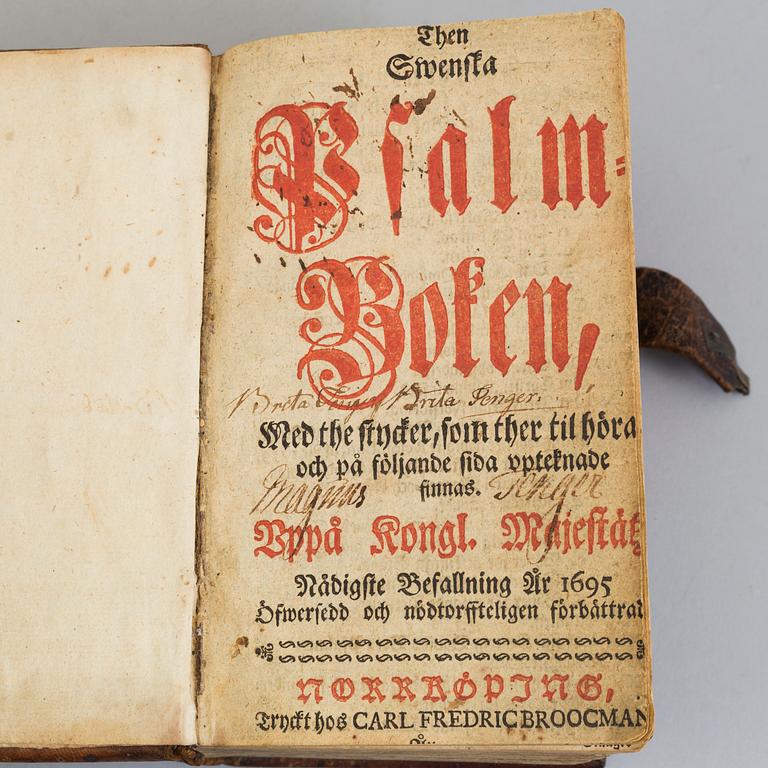 Then
Swenska
Psalm-
Boken,
Brita Penger Brita Penger.
Med the stycker, som ther til höra
och på följande sida vpteknade
finnas.
Magnus Penger
Vppå Kongl. Majestätz
Nådigste Befallning År 1695
Öfwersedd och nödtorffteligen förbättrad
NORRKÖPING,
Tryckt hos CARL FREDRIC BROOCMAN
År